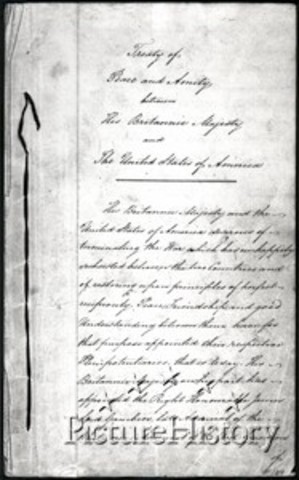 Treaty of
Peace and Amity
between
His Britannic Majesty
and
The United States of America
His Britannic Majesty and the
United States of America desirous of
terminating the War which has unhappily
subsisted between the two Countries and
of restoring upon principles of perfect
reciprocity, Peace, Friendship, and good
Understanding between them, have for
that purpose appointed their respective
Plenipotentiaries, that is to say, His
Britannic Majesty on his part has
appointed the Right Honourable James
Lord Gambier, late Admiral of the
PictureHistory